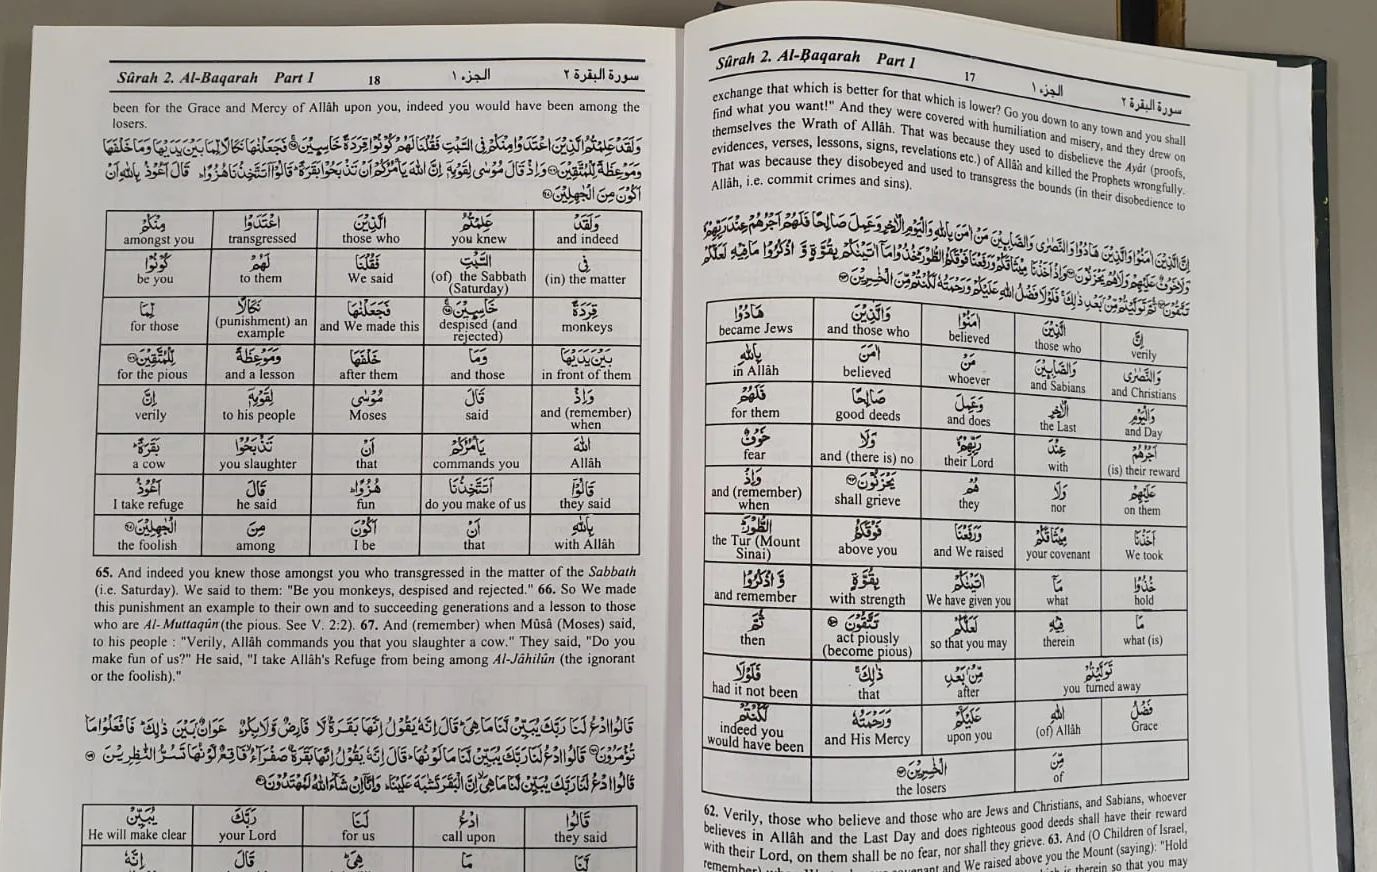 Sûrah 2. Al-Baqarah Part 1 17 الجزء ١ سورة البقرة ٢
exchange that which is better for that which is lower? Go you down to any town and you shall
find what you want!" And they were covered with humiliation and misery, and they drew on
themselves the Wrath of Allâh. That was because they used to disbelieve the Ayât (proofs,
evidences, verses, lessons, signs, revelations etc.) of Allâh and killed the Prophets wrongfully.
That was because they disobeyed and used to transgress the bounds (in their disobedience to
Allâh, i.e. commit crimes and sins).
إِنَّ الَّذِينَ اٰمَنُوْا وَالَّذِينَ هَادُوْا وَالنَّصٰرٰى وَالصَّابِـِٕينَ مَنْ اٰمَنَ بِاللّٰهِ وَالْيَوْمِ الْاٰخِرِ وَعَمِلَ صَالِحًا فَلَهُمْ اَجْرُهُمْ عِنْدَ رَبِّهِمْ
وَلَا خَوْفٌ عَلَيْهِمْ وَلَا هُمْ يَحْزَنُوْنَ ۝ وَإِذْ اَخَذْنَا مِيْثَاقَكُمْ وَرَفَعْنَا فَوْقَكُمُ الطُّوْرَ خُذُوْا مَا اٰتَيْنٰكُمْ بِقُوَّةٍ وَّ اذْكُرُوْا مَا فِيْهِ لَعَلَّكُمْ
تَتَّقُوْنَ ۝ ثُمَّ تَوَلَّيْتُمْ مِّنْ بَعْدِ ذٰلِكَ فَلَوْلَا فَضْلُ اللّٰهِ عَلَيْكُمْ وَرَحْمَتُهٗ لَكُنْتُمْ مِّنَ الْخٰسِرِيْنَ ۝
إِنَّ الَّذِيْنَ اٰمَنُوْا وَالَّذِيْنَ هَادُوْا
verily those who believed and those who became Jews
وَالنَّصٰرٰى وَالصَّابِـِٕيْنَ مَنْ اٰمَنَ بِاللّٰهِ
and Christians and Sabians whoever believed in Allâh
وَالْيَوْمِ الْاٰخِرِ وَعَمِلَ صَالِحًا فَلَهُمْ
and Day the Last and does good deeds for them
اَجْرُهُمْ عِنْدَ رَبِّهِمْ وَلَا خَوْفٌ
(is) their reward with their Lord and (there is) no fear
عَلَيْهِمْ وَلَا هُمْ يَحْزَنُوْنَ وَإِذْ
on them nor they shall grieve and (remember)
when
اَخَذْنَا مِيْثَاقَكُمْ وَرَفَعْنَا فَوْقَكُمُ الطُّوْرَ
We took your covenant and We raised above you the Tur (Mount
Sinai)
خُذُوْا مَا اٰتَيْنٰكُمْ بِقُوَّةٍ وَّ اذْكُرُوْا
hold what We have given you with strength and remember
مَا فِيْهِ لَعَلَّكُمْ تَتَّقُوْنَ ثُمَّ
what (is) therein so that you may act piously then
(become pious)
تَوَلَّيْتُمْ مِّنْ بَعْدِ ذٰلِكَ فَلَوْلَا
you turned away after that had it not been
فَضْلُ اللّٰهِ عَلَيْكُمْ وَرَحْمَتُهٗ لَكُنْتُمْ
Grace (of) Allâh upon you and His Mercy indeed you
would have been
مِّنَ الْخٰسِرِيْنَ
of the losers
62. Verily, those who believe and those who are Jews and Christians, and Sabians, whoever
believes in Allâh and the Last Day and does righteous good deeds shall have their reward
with their Lord, on them shall be no fear, nor shall they grieve. 63. And (O Children of Israel,
remember) covenant and We raised above you the Mount (saying): "Hold
is therein so that you may
Sûrah 2. Al-Baqarah Part 1 18 الجزء ١ سورة البقرة ٢
been for the Grace and Mercy of Allâh upon you, indeed you would have been among the
losers.
وَلَقَدْ عَلِمْتُمُ الَّذِيْنَ اعْتَدَوْا مِنْكُمْ فِي السَّبْتِ فَقُلْنَا لَهُمْ كُوْنُوْا قِرَدَةً خَاسِـِٕيْنَ ۝ فَجَعَلْنٰهَا نَكَالًا لِّمَا بَيْنَ يَدَيْهَا وَمَا خَلْفَهَا
وَمَوْعِظَةً لِّلْمُتَّقِيْنَ ۝ وَإِذْ قَالَ مُوْسٰى لِقَوْمِهٖ إِنَّ اللّٰهَ يَأْمُرُكُمْ اَنْ تَذْبَحُوْا بَقَرَةً قَالُوْا اَتَتَّخِذُنَا هُزُوًا قَالَ اَعُوْذُ بِاللّٰهِ اَنْ
اَكُوْنَ مِنَ الْجٰهِلِيْنَ ۝
وَلَقَدْ عَلِمْتُمُ الَّذِيْنَ اعْتَدَوْا مِنْكُمْ
and indeed you knew those who transgressed amongst you
فِي السَّبْتِ فَقُلْنَا لَهُمْ كُوْنُوْا
(in) the matter (of) the Sabbath We said to them be you
(Saturday)
قِرَدَةً خَاسِـِٕيْنَ فَجَعَلْنٰهَا نَكَالًا لِّمَا
monkeys despised (and and We made this (punishment) an for those
rejected) example
بَيْنَ يَدَيْهَا وَمَا خَلْفَهَا وَمَوْعِظَةً لِّلْمُتَّقِيْنَ
in front of them and those after them and a lesson for the pious
وَإِذْ قَالَ مُوْسٰى لِقَوْمِهٖ إِنَّ
and (remember) said Moses to his people verily
when
اللّٰهَ يَأْمُرُكُمْ اَنْ تَذْبَحُوْا بَقَرَةً
Allâh commands you that you slaughter a cow
قَالُوْا اَتَتَّخِذُنَا هُزُوًا قَالَ اَعُوْذُ
they said do you make of us fun he said I take refuge
بِاللّٰهِ اَنْ اَكُوْنَ مِنَ الْجٰهِلِيْنَ
with Allâh that I be among the foolish
65. And indeed you knew those amongst you who transgressed in the matter of the Sabbath
(i.e. Saturday). We said to them: "Be you monkeys, despised and rejected." 66. So We made
this punishment an example to their own and to succeeding generations and a lesson to those
who are Al-Muttaqûn (the pious. See V. 2:2). 67. And (remember) when Mûsâ (Moses) said,
to his people : "Verily, Allâh commands you that you slaughter a cow." They said, "Do you
make fun of us?" He said, "I take Allâh's Refuge from being among Al-Jâhilûn (the ignorant
or the foolish)."
قَالُوا ادْعُ لَنَا رَبَّكَ يُبَيِّنْ لَّنَا مَا هِيَ قَالَ إِنَّهٗ يَقُوْلُ إِنَّهَا بَقَرَةٌ لَّا فَارِضٌ وَّلَا بِكْرٌ عَوَانٌ بَيْنَ ذٰلِكَ فَافْعَلُوْا مَا
تُؤْمَرُوْنَ ۝ قَالُوا ادْعُ لَنَا رَبَّكَ يُبَيِّنْ لَّنَا مَا لَوْنُهَا قَالَ إِنَّهٗ يَقُوْلُ إِنَّهَا بَقَرَةٌ صَفْرَآءُ فَاقِعٌ لَّوْنُهَا تَسُرُّ النّٰظِرِيْنَ ۝
قَالُوا ادْعُ لَنَا رَبَّكَ يُبَيِّنْ لَّنَا مَا هِيَ إِنَّ الْبَقَرَ تَشٰبَهَ عَلَيْنَا وَإِنَّآ إِنْ شَآءَ اللّٰهُ لَمُهْتَدُوْنَ ۝
قَالُوا ادْعُ لَنَا رَبَّكَ يُبَيِّنْ
they said call upon for us your Lord He will make clear
لَّنَا مَا هِيَ قَالَ إِنَّهٗ